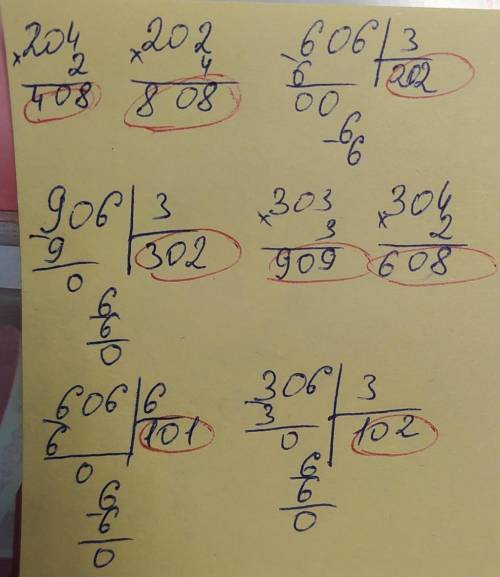 ×204
2
408
×202
4
808
-606 | 3
6 | 202
00
-6
6
-906 | 3
9 | 302
0
-6
6
0
×303
3
909
×304
2
608
-606 | 6
6 | 101
0
-6
6
0
-306 | 3
3 | 102
0
-6
6
0